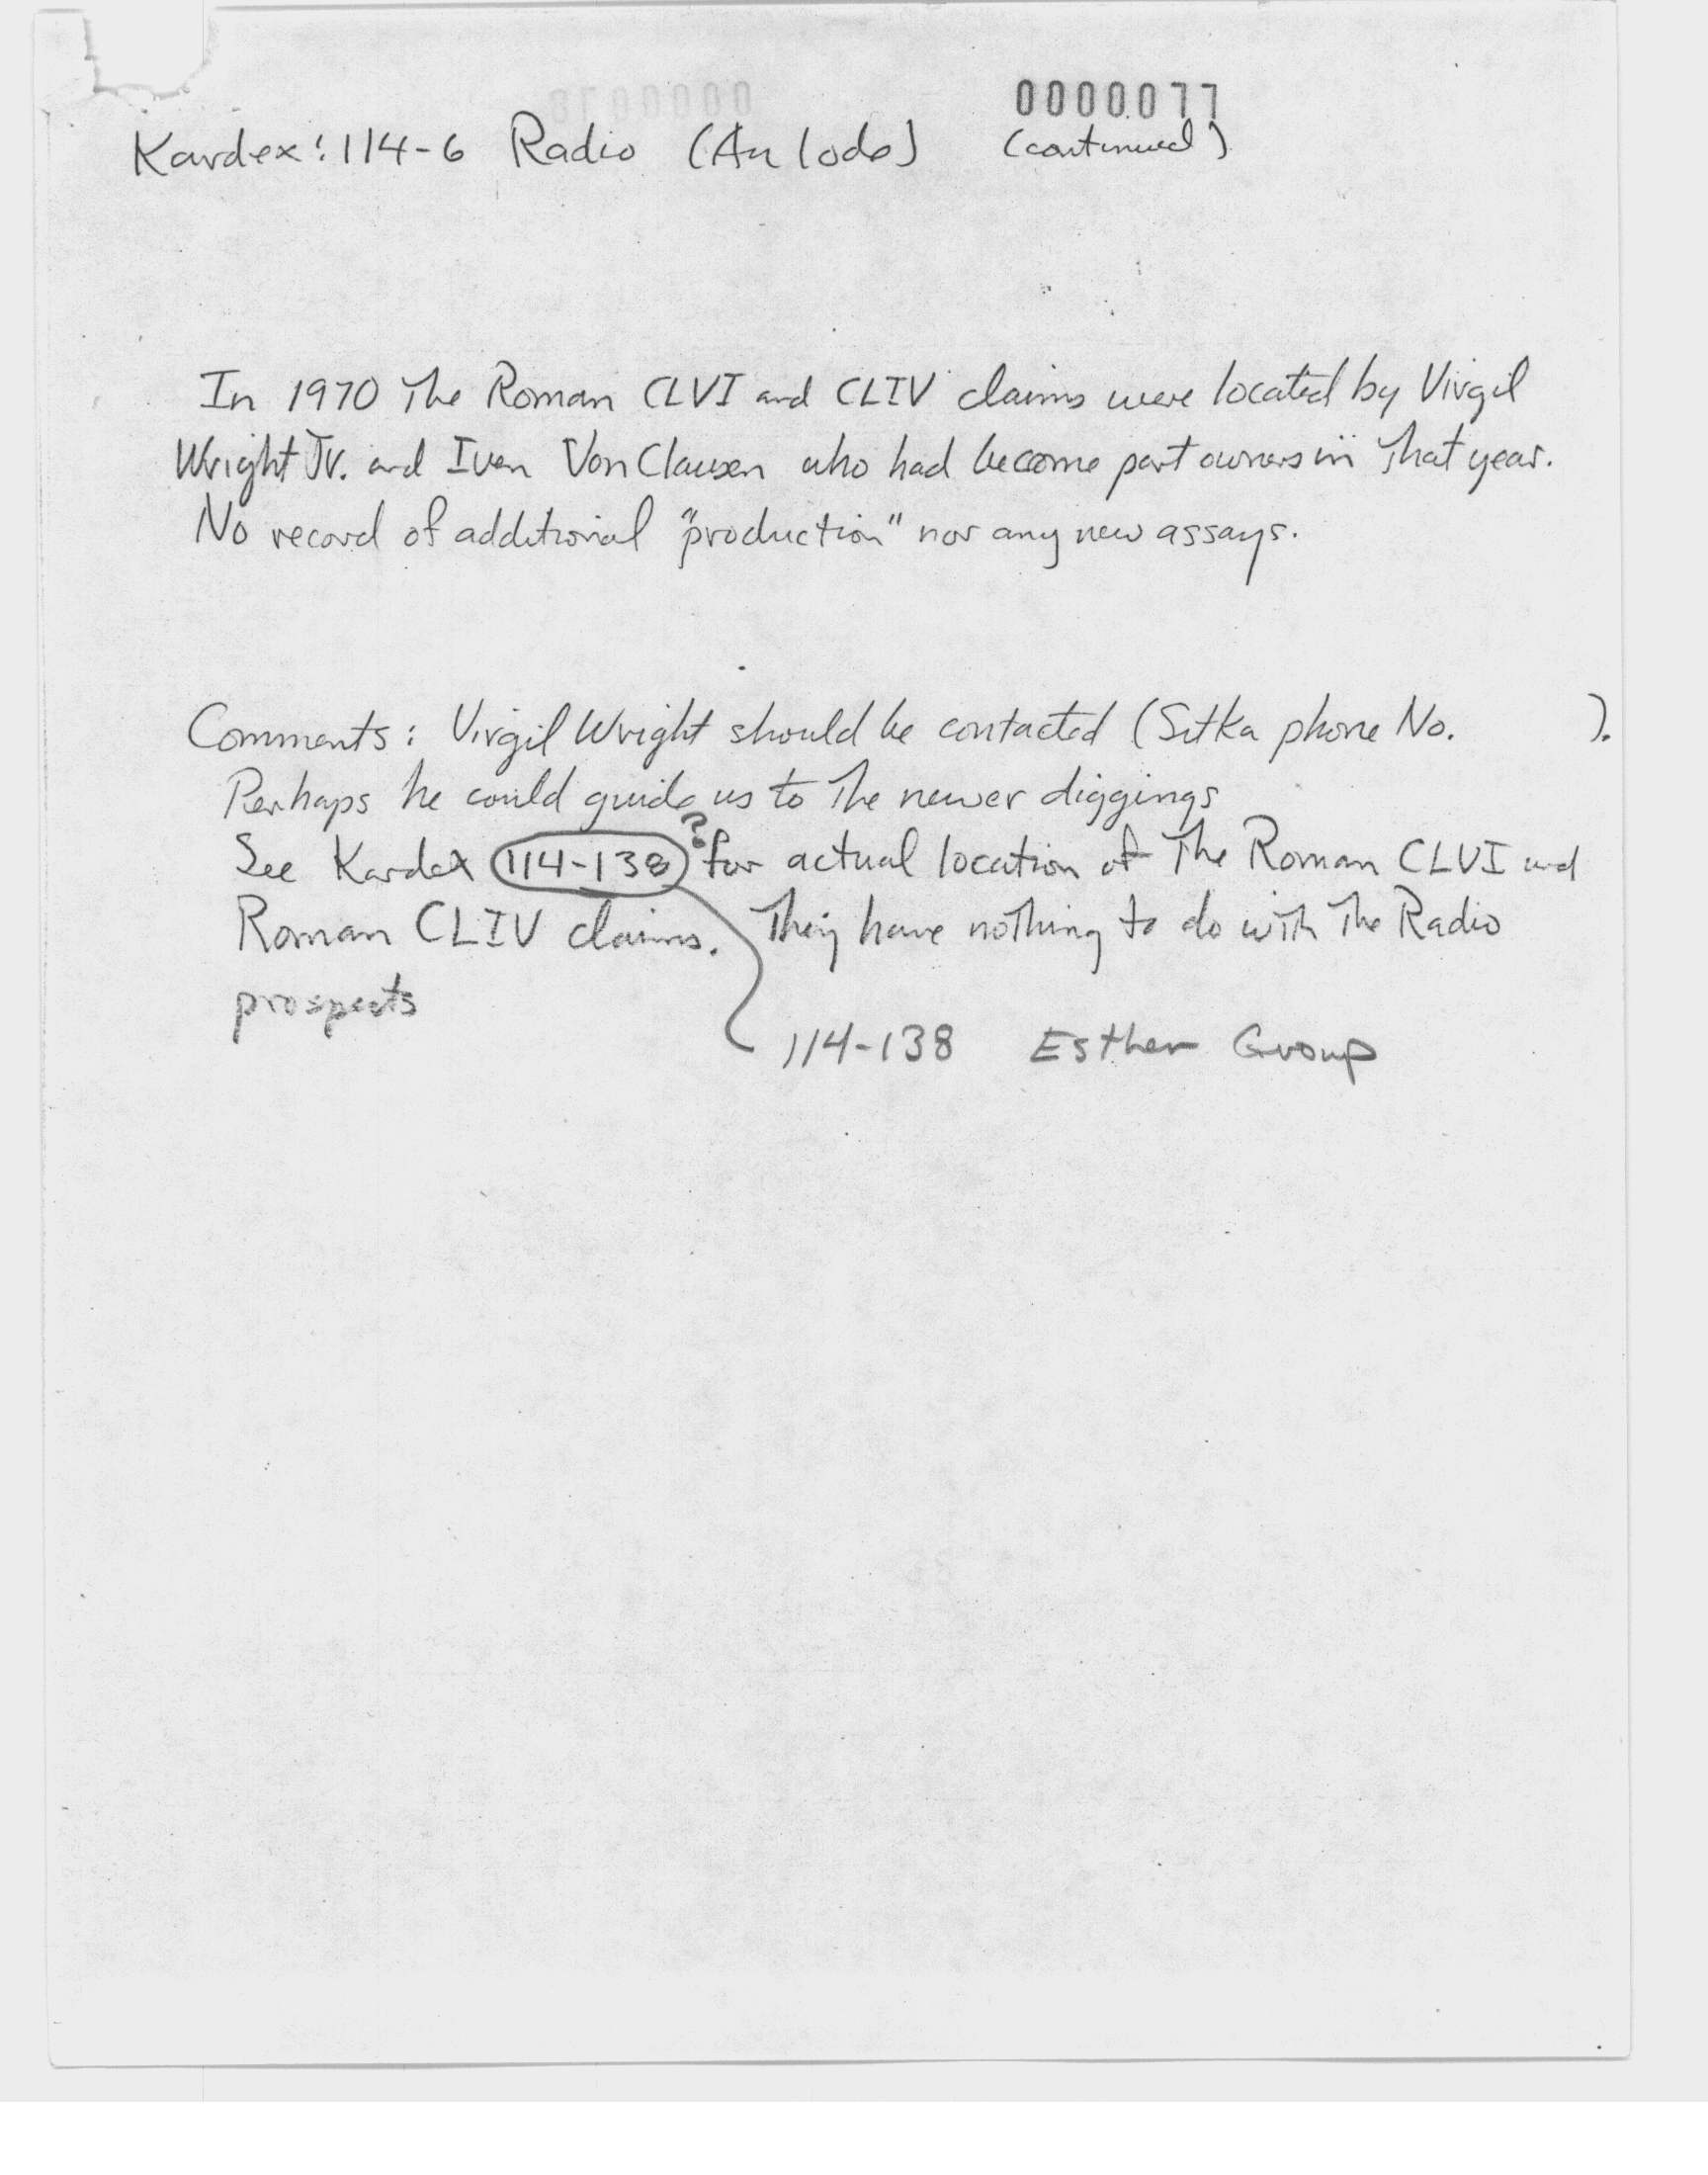 0000077
Kardex: 114-6 Radio (Au lode) (continued)
In 1970 The Roman CLVI and CLIV claims were located by Virgil
Wright Jr. and Iven Von Clausen who had become part owners in that year.
No record of additional "production" nor any new assays.
Comments: Virgil Wright should be contacted (Sitka phone No. ).
Perhaps he could guide us to the newer diggings
See Kardex 114-138 ? for actual location of The Roman CLVI and
Roman CLIV claims. They have nothing to do with The Radio
prospects
114-138 Esther Group